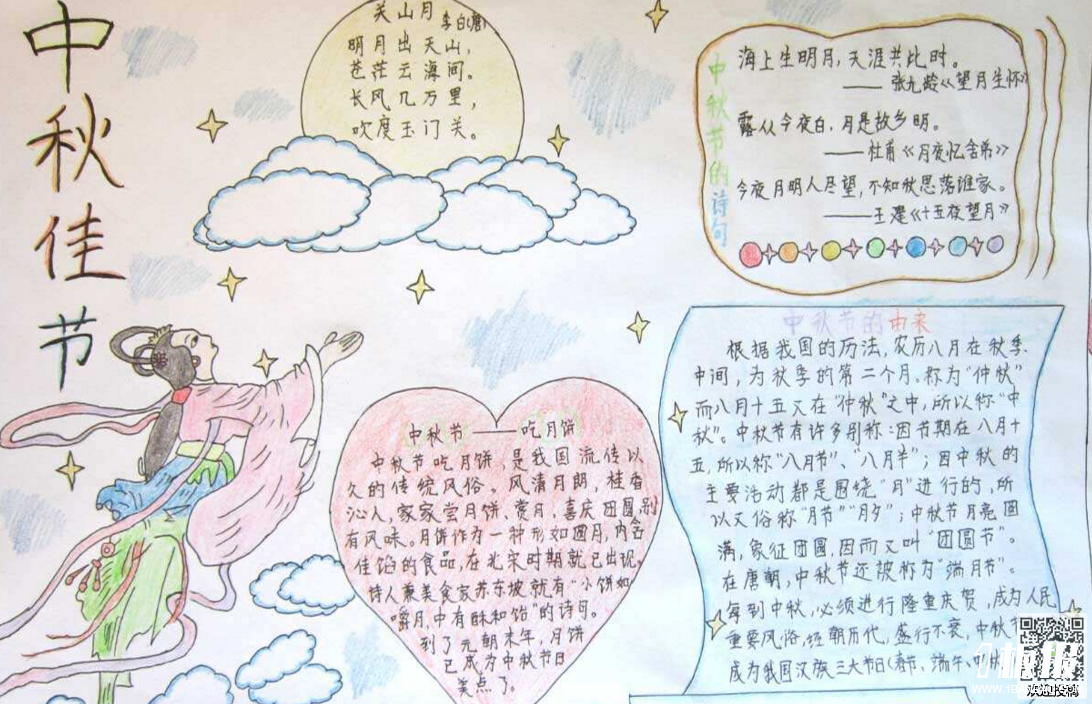 中秋佳节
关山月
李白(唐)
明月出天山，
苍茫云海间。
长风几万里，
吹度玉门关。
中秋节的诗句
海上生明月，天涯共比时。
——张九龄《望月生怀》
露从今夜白，月是故乡明。
——杜甫《月夜忆舍弟》
今夜月明人尽望，不知秋思落谁家。
——王建《十五夜望月》
中秋节——吃月饼
中秋节吃月饼，是我国流传以
久的传统风俗。风清月朗，桂香
沁人，家家尝月饼、赏月，喜庆团圆，别
有风味。月饼作为一种形如圆月，内含
佳馅的食品，在北宋时期就已出现。
诗人兼美食家苏东坡就有“小饼如
嚼月，中有酥和饴”的诗句。
到了元朝末年，月饼
已成为中秋节日
美点了。
中秋节的由来
根据我国的历法，农历八月在秋季
中间，为秋季的第二个月，称为“仲秋”
而八月十五又在“仲秋”之中，所以称“中
秋”。中秋节有许多别称：因节期在八月十
五，所以称“八月节”、“八月半”；因中秋的
主要活动都是围绕“月”进行的，所
以又俗称“月节”“月夕”；中秋节月亮圆
满，象征团圆，因而又叫“团圆节”。
在唐朝，中秋节还被称为“端月节”。
每到中秋，必须进行隆重庆贺，成为人民
重要风俗，经朝历代，盛行不衰，中秋节
成为我国汉族三大节日(春节、端午、中秋
欢迎投稿